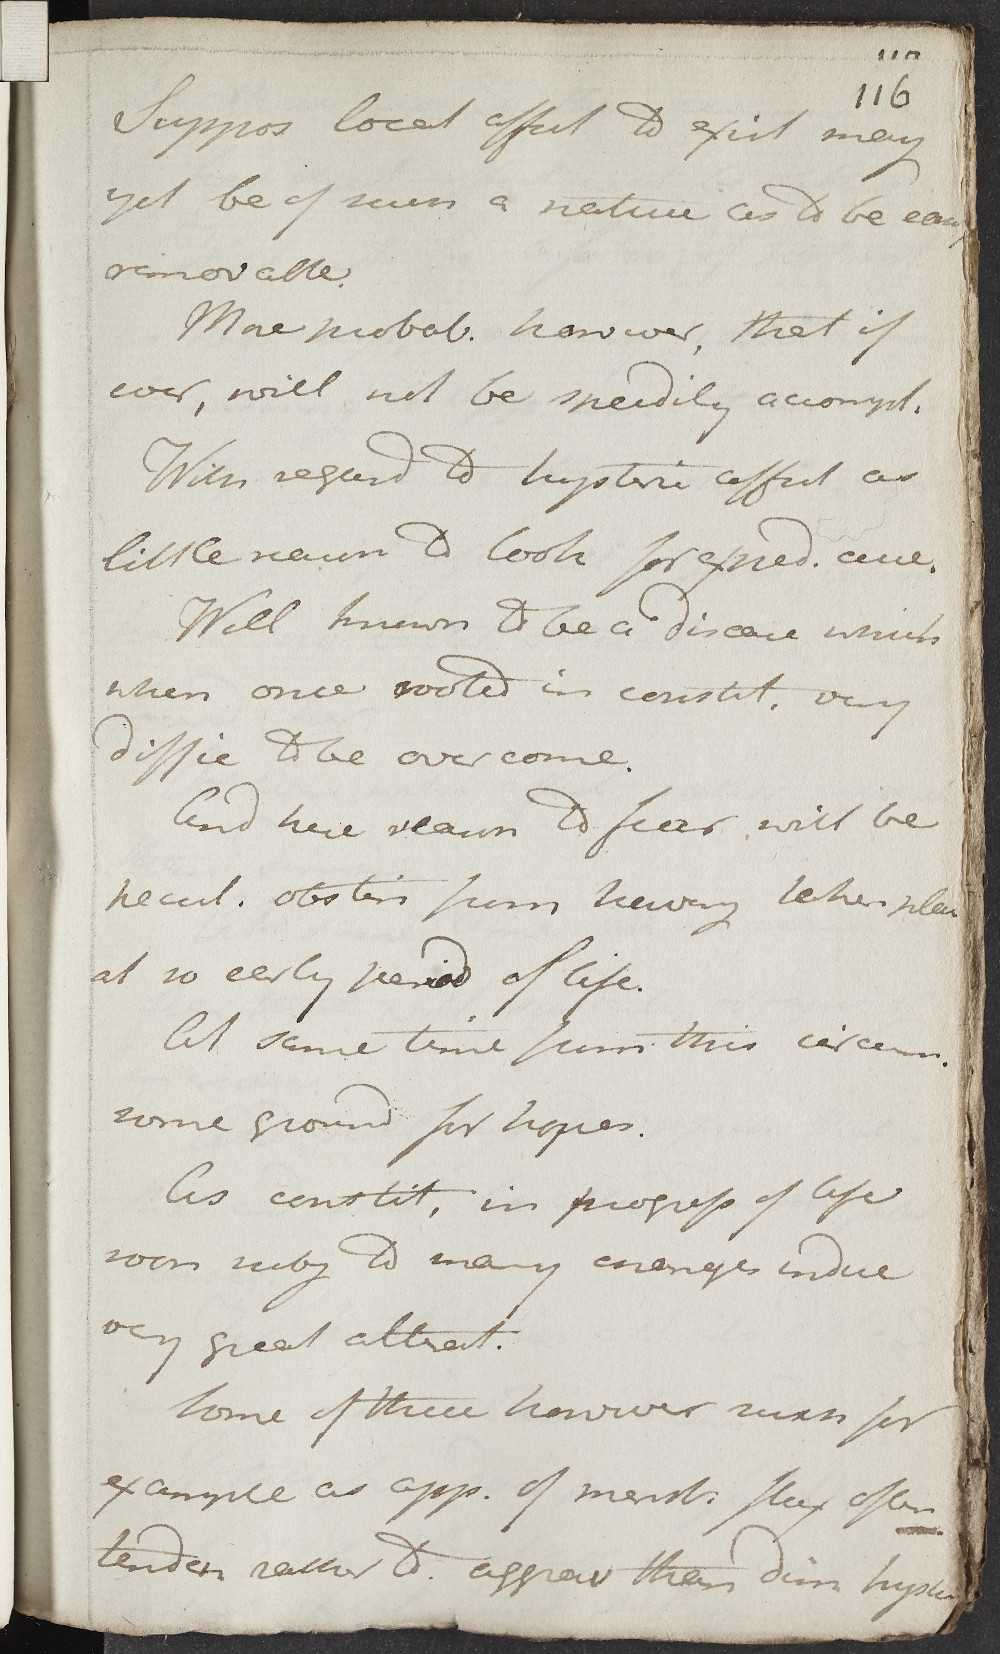 116
Suppos local affect to exist may
yet be of such a nature as to be easy
removable.
More probab. however, that if
ever, will not be speedily accompl.
With regard to hysteric affect as
little reason to look for exped. cure.
Well known to be a disease which
when once rooted in constit. very
diffic to be overcome.
And here reason to fear will be
pecul. obstin from having taken place
at so early period of life.
At same time from this circum.
some ground for hopes.
As constit, in progress of life
soon subj to many changes induce
very great alterat.
Some of these however such for
example as app. of menst. flux often
tenden rather to aggrav than dim hyster